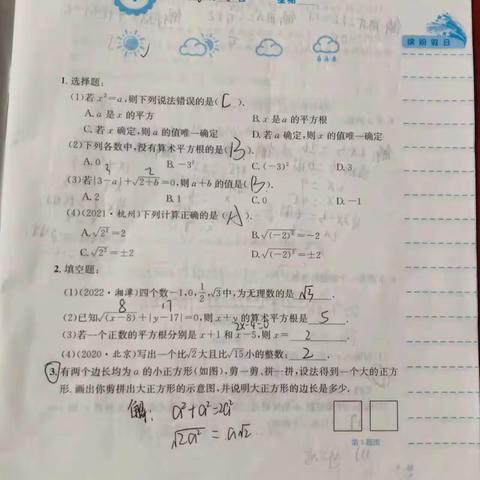 缤纷假日
1. 选择题:
(1)若 x²=a,则下列说法错误的是( C ).
A. a 是 x 的平方 B. x 是 a 的平方根
C. 若 x 确定,则 a 的值唯一确定 D. 若 a 确定,则 x 的值唯一确定
(2)下列各数中,没有算术平方根的是( B ).
A. 0 B. -3² C. (-3)² D. 3
3 -2
(3)若|3-a|+√(2+b)=0,则 a+b 的值是( B ).
A. 2 B. 1 C. 0 D. -1
(4)(2021·杭州)下列计算正确的是( A ).
A. √(2²)=2 B. √((-2)²)=-2
C. √(2²)=±2 D. √((-2)²)=±2
2. 填空题:
(1)(2022·湘潭)四个数-1,0,1/2,√3中,为无理数的是 √3 .
8 17
(2)已知√(x-8)+|y-17|=0,则 x+y 的算术平方根是 5 .
2x-4=0
(3)若一个正数的平方根分别是 x+1 和 x-5,则 x= 2 .
(4)(2020·北京)写出一个比√2大且比√15小的整数: 2 .
3. 有两个边长均为 a 的小正方形(如图),剪一剪、拼一拼,设法得到一个大的正方
形. 画出你剪拼出大正方形的示意图,并说明大正方形的边长是多少.
解: a²+a²=2a²
√(2a²)=a√2
第3题图